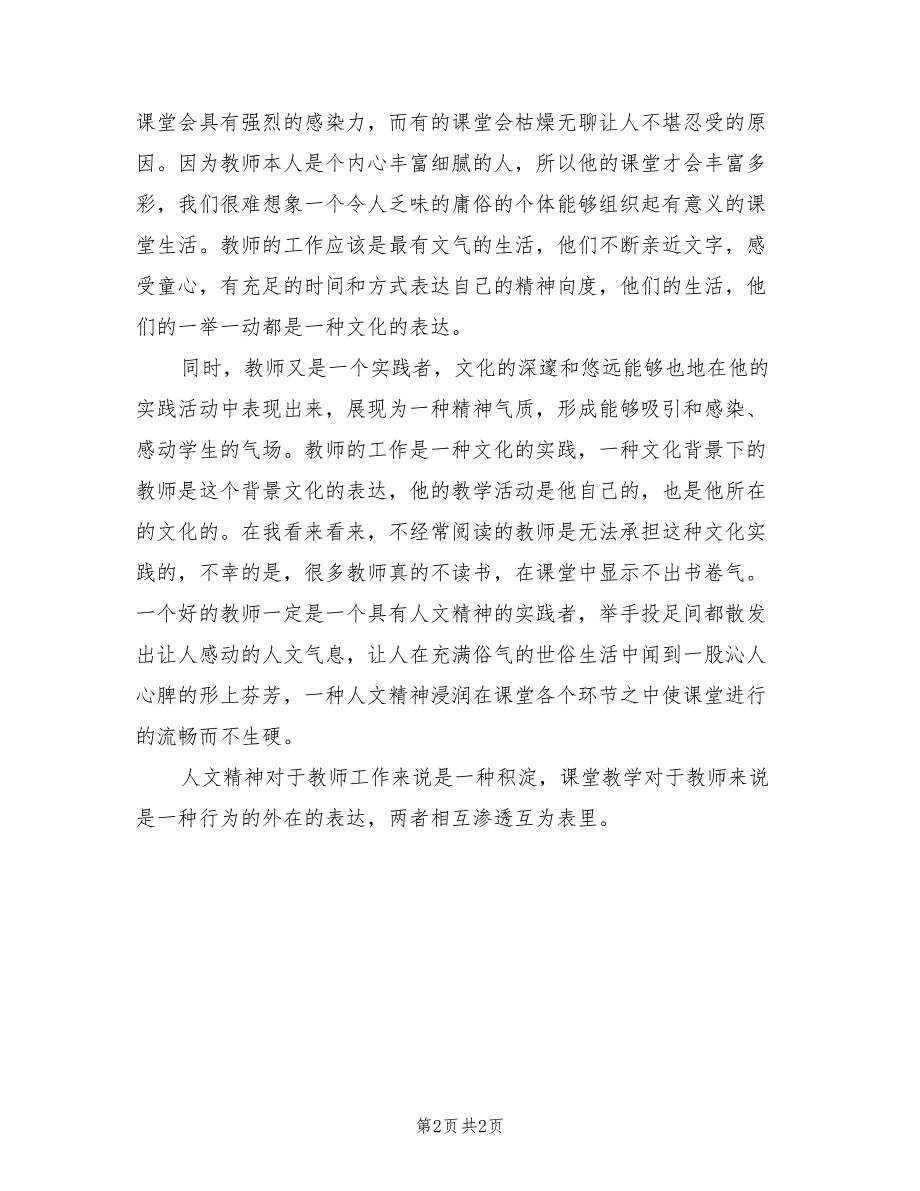 课堂会具有强烈的感染力，而有的课堂会枯燥无聊让人不堪忍受的原
因。因为教师本人是个内心丰富细腻的人，所以他的课堂才会丰富多
彩，我们很难想象一个令人乏味的庸俗的个体能够组织起有意义的课
堂生活。教师的工作应该是最有文气的生活，他们不断亲近文字，感
受童心，有充足的时间和方式表达自己的精神向度，他们的生活，他
们的一举一动都是一种文化的表达。
同时，教师又是一个实践者，文化的深邃和悠远能够也地在他的
实践活动中表现出来，展现为一种精神气质，形成能够吸引和感染、
感动学生的气场。教师的工作是一种文化的实践，一种文化背景下的
教师是这个背景文化的表达，他的教学活动是他自己的，也是他所在
的文化的。在我看来看来，不经常阅读的教师是无法承担这种文化实
践的，不幸的是，很多教师真的不读书，在课堂中显示不出书卷气。
一个好的教师一定是一个具有人文精神的实践者，举手投足间都散发
出让人感动的人文气息，让人在充满俗气的世俗生活中闻到一股沁人
心脾的形上芬芳，一种人文精神浸润在课堂各个环节之中使课堂进行
的流畅而不生硬。
人文精神对于教师工作来说是一种积淀，课堂教学对于教师来说
是一种行为的外在的表达，两者相互渗透互为表里。
第2页 共2页